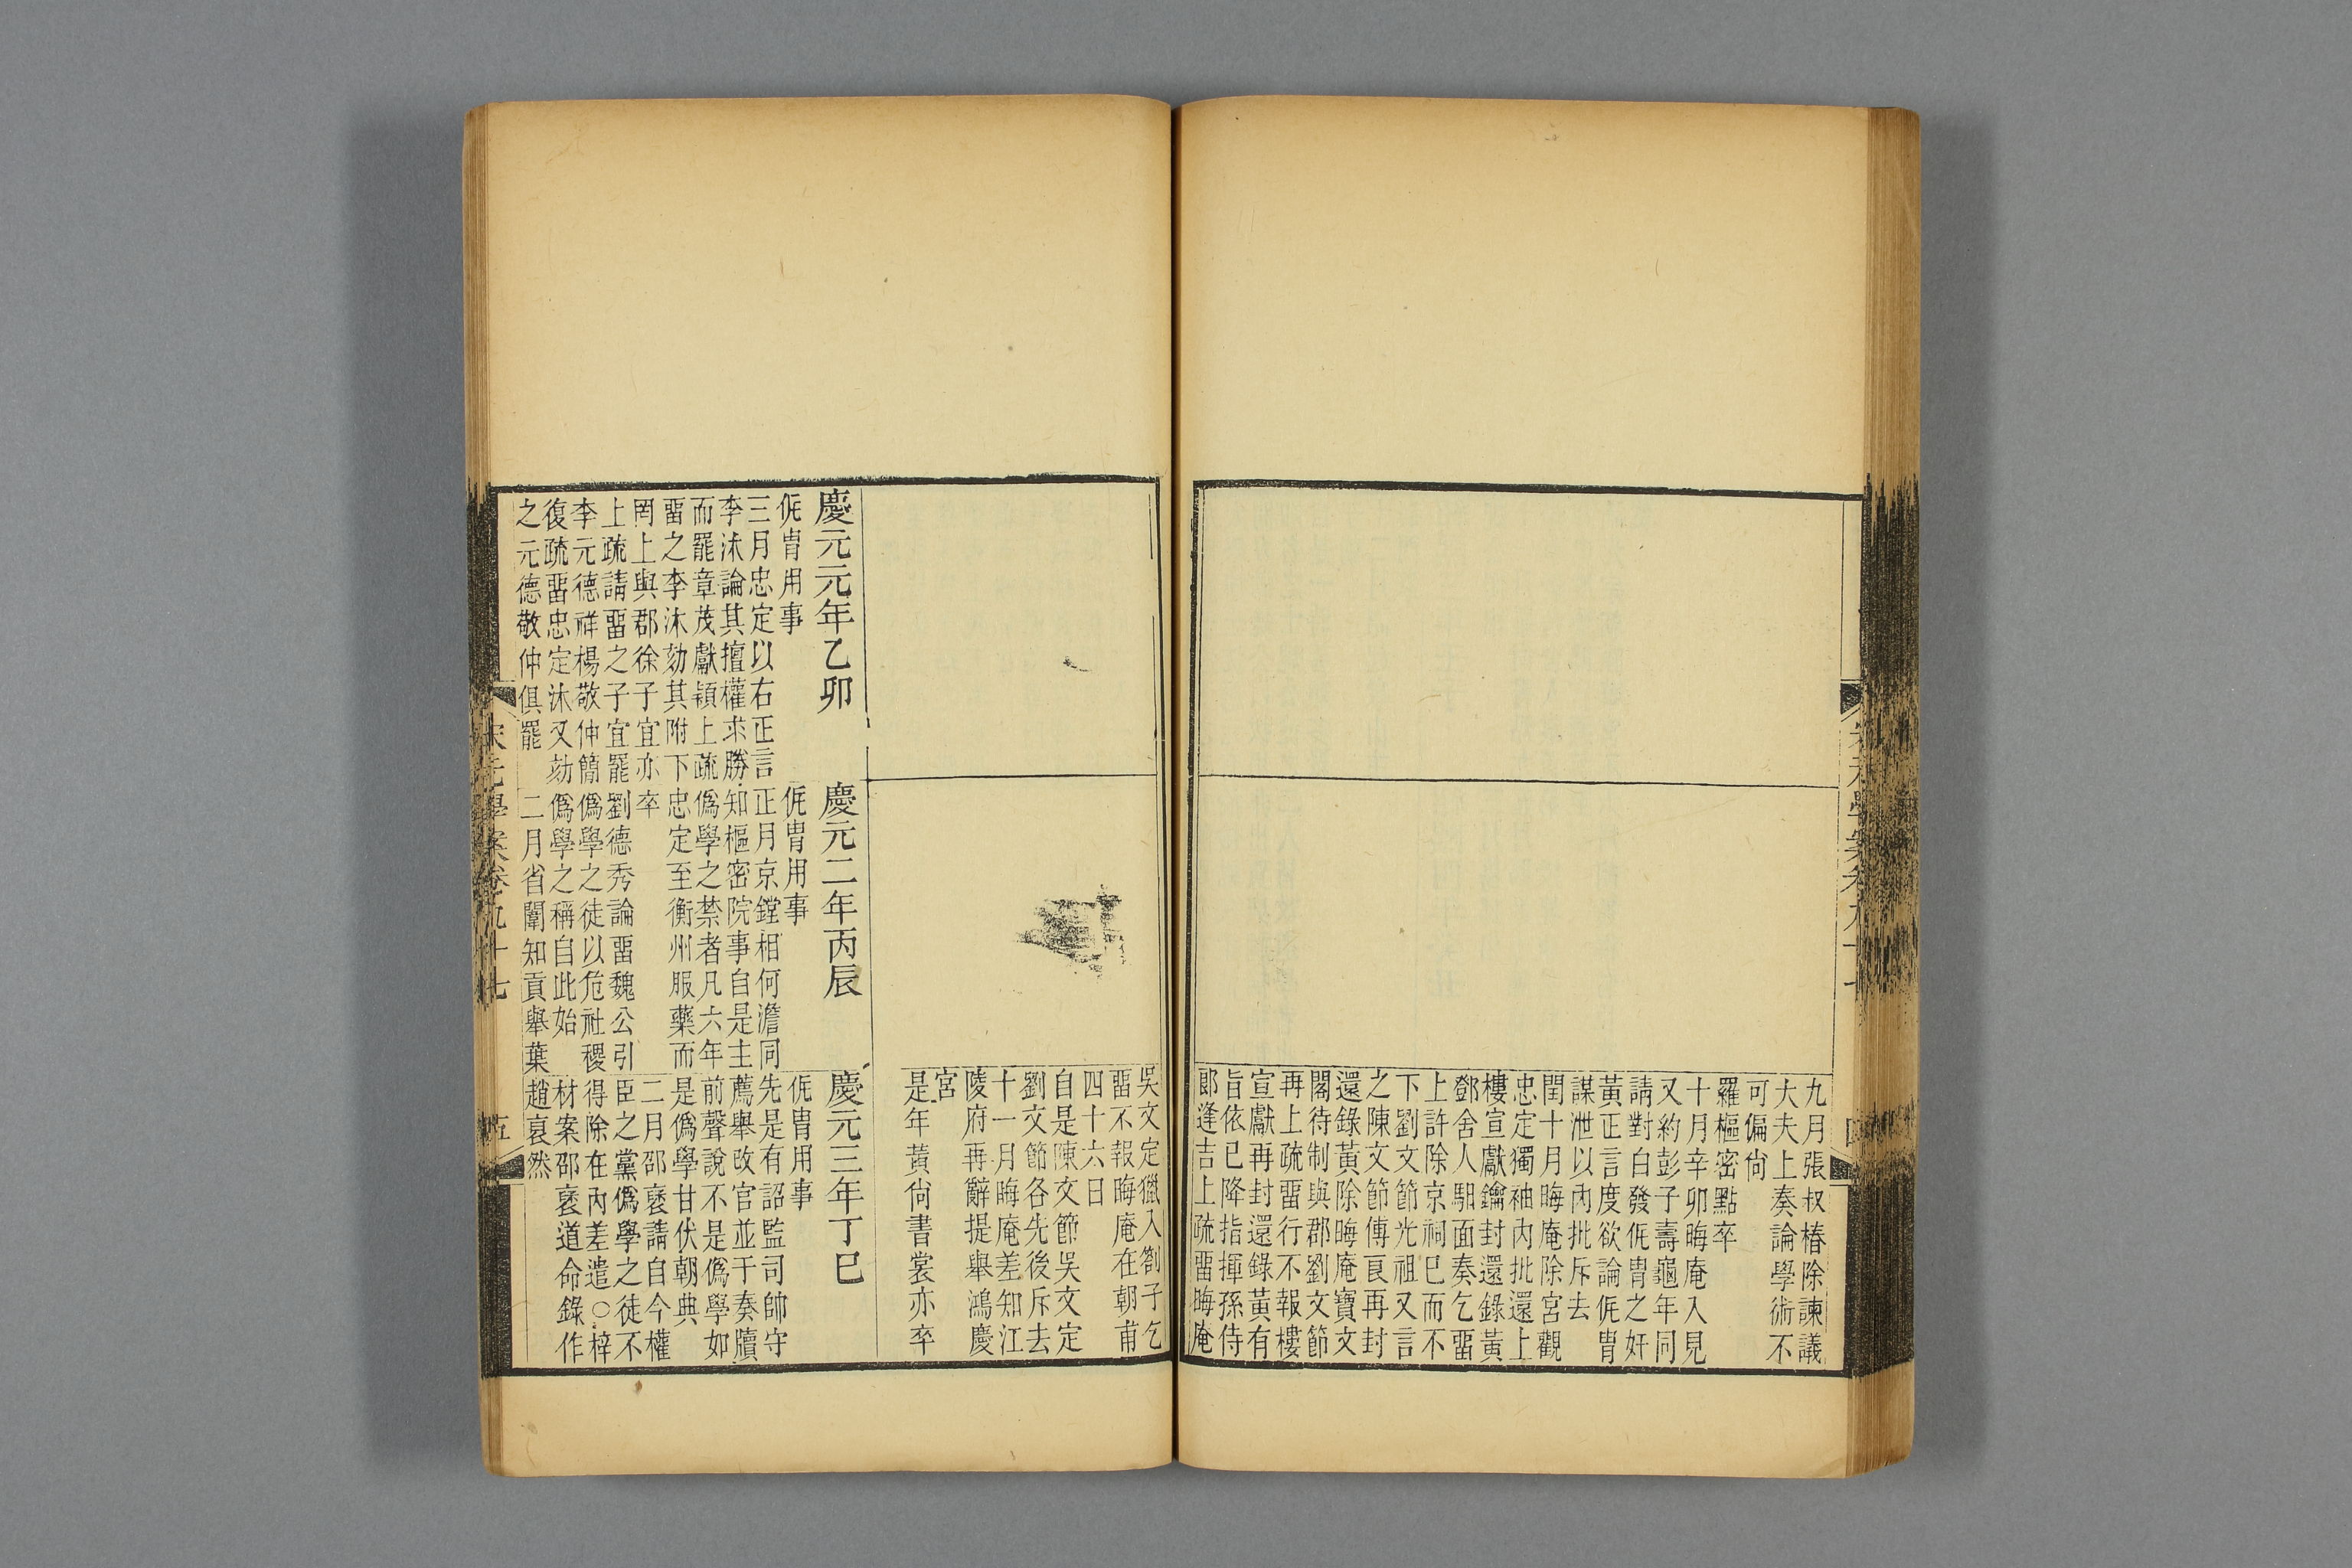 九月張叔椿除諫議
大夫上奏論學術不
可偏尙
羅樞密點卒
十月辛卯晦庵入見
又約彭子壽龜年同
請對白發侂冑之奸
黃正言度欲論侂冑
謀泄以內批斥去
閏十月晦庵除宮觀
忠定獨袖內批還上
樓宣獻鑰封還錄黃
鄧舍人馹面奏乞畱
上許除京祠巳而不
下劉文節光祖又言
之陳文節傅良再封
還錄黃除晦庵寶文
閣待制與郡劉文節
再上疏畱行不報樓
宣獻再封還錄黃有
旨依巳降指揮孫侍
郞逢吉上疏畱晦庵
吳文定獵入劄子乞
畱不報晦庵在朝甫
四十六日
自是陳文節吳文定
劉文節各先後斥去
十一月晦庵差知江
陵府再辭提舉鴻慶
宮
是年黃尙書裳亦卒
慶元元年乙卯
侂冑用事
三月忠定以右正言
李沐論其擅權求勝
而罷章茂獻穎上疏
畱之李沐劾其附下
罔上與郡徐子宜亦
上疏請畱之子宜罷
李元德祥楊敬仲簡
復疏畱忠定沐又劾
之元德敬仲俱罷
慶元二年丙辰
侂冑用事
正月京鏜相何澹同
知樞密院事自是主
僞學之禁者凡六年
忠定至衡州服藥而
卒
劉德秀論畱魏公引
僞學之徒以危社稷
僞學之稱自此始
二月省闈知貢舉葉
慶元三年丁巳
侂冑用事
先是有詔監司帥守
薦舉改官並于奏牘
前聲說不是僞學如
是僞學甘伏朝典
二月邵裦請自今權
臣之黨僞學之徒不
得除在內差遣○梓
材案邵裦道命錄作
趙裦然
宋元學案卷九十七
五